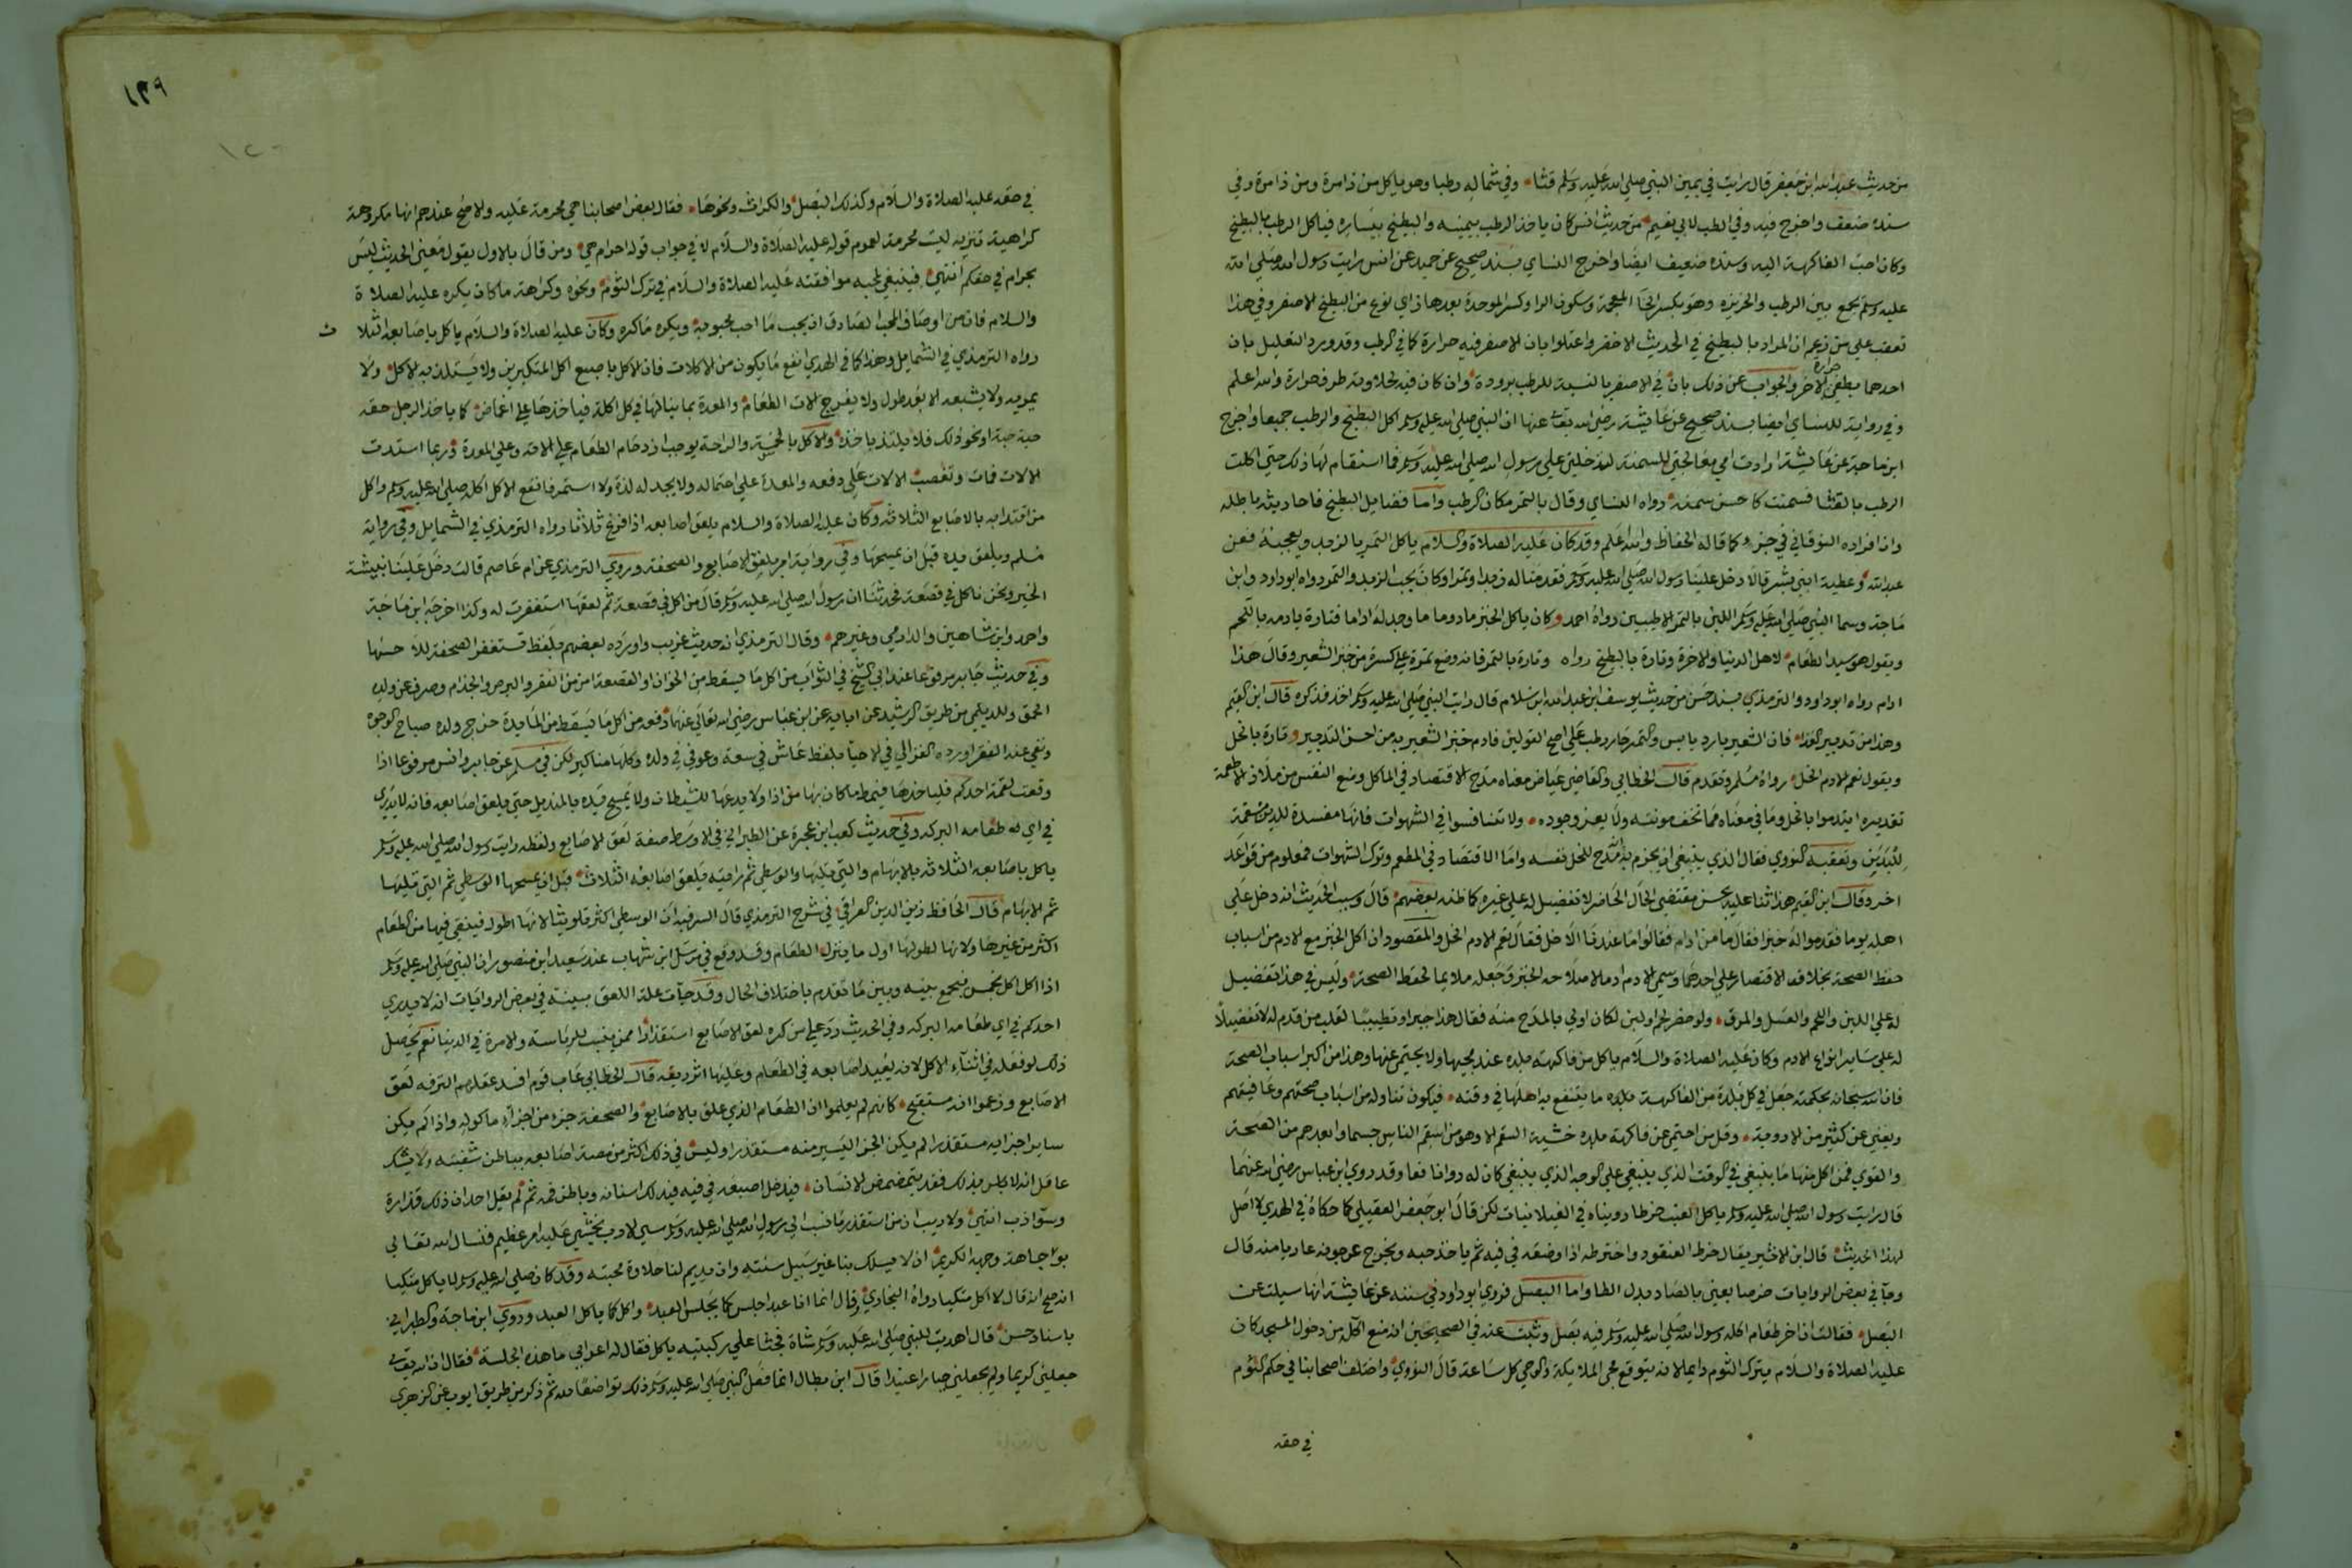 من حديث عبد الله ابن جعفر قال رايت في يمين النبي صلي الله عليه وسلم قثاء وفي شماله رطبا وهو ياكل من ذا مرة ومن ذا مرة وفي
سنده ضعف واخرج فيه وفي الطب لابي نعيم من حديث انس كان ياخذ الرطب بيمينه والبطيخ بيساره فياكل الرطب بالبطيخ
وكان احب الفاكهة اليه وسنده ضعيف ايضا واخرج النساي بسند صحيح عن حميد عن انس رايت رسول الله صلي الله
عليه وسلم يجمع بين الرطب والخربزه وهو بكسر الخا المعجمة وسكون الرا وكسر الموحدة بعدها زاي نوع من البطيخ الاصفر وفي هذا
تعقب علي من زعم ان المراد بالبطيخ في الحديث الاخضر واعتلوا بان الاصفر فيه حرارة كما في الرطب وقد ورد التعليل بان
احدهما يطفي حرارة الاخر والجواب عن ذلك بان في الاصفر بالنسبة للرطب برودة وان كان فيه لحلاوته طرف حرارة والله اعلم
وفي رواية للنساي ايضا بسند صحيح عن عايشة رضي الله تعالى عنها ان النبي صلي الله عليه وسلم اكل البطيخ والرطب جميعا واخرج
ابن ماجة عن عايشة ارادت امي معالجتي للسمنة لتدخلني علي رسول الله صلي الله عليه وسلم فما استقام لها ذلك حتي اكلت
الرطب بالقثا فسمنت كاحسن سمنة رواه النساي وقال بالتمر مكان الرطب واما فضايل البطيخ فاحاديثه باطلة
وان افراده النوقاني في جزء كما قاله الحفاظ والله اعلم وقد كان عليه الصلاة والسلام ياكل التمر بالزبد ويعجبه فعن
عبد الله وعطية ابني بشر قالا دخل علينا رسول الله صلي الله عليه وسلم فقدمنا له زبدا وتمرا وكان يحب الزبد والتمر رواه ابو داود وابن
ماجة وسما النبي صلي الله عليه وسلم اللبن بالتمر الاطيبين رواه احمد وكان ياكل الخبز مادوما ما وجد له اداما فتارة يادمه باللحم
ويقول هو سيد الطعام لاهل الدنيا والاخرة وتارة بالبطيخ رواه وتارة بالتمر فانه وضع تمرة علي كسرة من خبز الشعير وقال هذا
ادام رواه ابو داود والترمذي بسند حسن من حديث يوسف ابن عبد الله ابن سلام قال رايت النبي صلي الله عليه وسلم اخذ فذكره قال ابن القيم
وهذا من تدبير الغذا فان الشعير بارد يابس والتمر حار رطب علي اصح القولين فادم خبز الشعير به من احسن التدبير وتارة بالخل
ويقول نعم الادم الخل رواه مسلم وتقدم قال الخطابي والقاضي عياض معناه مدح الاقتصاد في الماكل ومنع النفس من ملاذ الاطعمة
تقديره ايتدموا بالخل وما في معناه مما تخف مونته ولا يعز وجوده ولا تتنافسوا في الشهوات فانها مفسدة للدين مسقمة
للبدن وتعقبه النووي فقال الذي ينبغي ان يجزم به انه مدح للخل نفسه واما الاقتصاد في المطعم وترك الشهوات فمعلوم من قواعد
اخر وقال ابن القيم هذا ثنا عليه بحسن مقتضي الحال الحاضر لا تفضيل له علي غيره كما ظنه بعضهم قال وسبب الحديث انه دخل علي
اهله يوما فقدموا له خبزا فقال ما من ادام فقالوا ما عندنا الا خل فقال نعم الادم الخل والمقصود ان اكل الخبز مع الادم من اسباب
حفظ الصحة بخلاف الاقتصار علي احدهما وسمي الادم ادما لاصلاحه الخبز وجعله ملايما لحفظ الصحة وليس في هذا تفضيل
له علي اللبن واللحم والعسل والمرق ولو حضر لحم او لبن لكان اولي بالمدح منه فقال هذا جبرا وتطييبا لقلب من قدم له لا تفضيلا
له علي ساير انواع الادم وكان عليه الصلاة والسلام ياكل من فاكهة بلده عند مجيها ولا يحتمي عنها وهذا من اكبر اسباب الصحة
فان الله سبحانه بحكمته جعل في كل بلدة من الفاكهة بلده ما ينتفع به اهلها في وقته فيكون تناوله من اسباب صحتهم وعافيتهم
ويغني عن كثير من الادوية وقل من احتمي عن فاكهة بلده خشية السقم الا وهو من اسقم الناس جسما وابعدهم من الصحة
والقوي فمن اكل منها ما ينبغي في الوقت الذي ينبغي علي الوجه الذي ينبغي كان له دوا نافعا وقد روي ابن عباس رضي الله عنهما
قال رايت رسول الله صلي الله عليه وسلم ياكل العنب خرطا رويناه في الغيلانيات لكن قال ابو جعفر العقيلي كما حكاه في الهدي لا اصل
لهذا الحديث قال ابن الاثير يقال خرط العنقود واخترطه اذا وضعه في فيه ثم ياخذ حبه ويخرج عرجونه عاريا منه قال
وجا في بعض الروايات خرصا يعني بالصاد بدل الطا واما البصل فروي ابو داود في سننه عن عايشة انها سيلت عن
البصل فقالت ان اخر طعام اكله رسول الله صلي الله عليه وسلم فيه بصل وثبت عنه في الصحيحين انه منع اكله من دخول المسجد كان
عليه الصلاة والسلام يترك الثوم دايما لانه يتوقع مجي الملايكة والوحي كل ساعة قال النووي واختلف اصحابنا في حكم الثوم
في حقه
١٣٩
في حقه عليه الصلاة والسلام وكذلك البصل والكراث ونحوها فقال بعض اصحابنا هي محرمة عليه والاصح عندهم انها مكروهة
كراهية تنزيه ليست محرمة لعموم قوله عليه الصلاة والسلام لا في جواب قوله احرام هي ومن قال بالاول يقول معني الحديث ليس
بحرام في حقكم انتهي فينبغي لمحبه موافقته عليه الصلاة والسلام في ترك الثوم ونحوه وكراهة ما كان يكره عليه الصلاة
والسلام فان من اوصاف المحب الصادق ان يحب ما احب محبوبه ويكره ما كره وكان عليه الصلاة والسلام ياكل باصابعه الثلا ث
رواه الترمذي في الشمايل وهذا كما في الهدي انفع ما يكون من الاكلات فان الاكل باصبع اكل المتكبرين ولا يستلذ به الاكل ولا
يمريه ولا يشبعه الا بعد طول ولا يفرح الات الطعام والمعدة بما ينالها في كل اكلة فياخذها علي اغماض كما ياخذ الرجل حقه
حبة حبة او نحو ذلك فلا يلتذ باخذه والاكل بالخمسة والراحة يوجب ازدحام الطعام علي الاته وعلي المعدة وربما استدت
الالات فمات وتغصب الالات علي دفعه والمعدة علي احتماله ولا يجد له لذة ولا استمرا فانفع الاكل اكله صلي الله عليه وسلم واكل
من اقتدا به بالاصابع الثلاثة وكان عليه الصلاة والسلام يلعق اصابعه اذا فرغ ثلاثا رواه الترمذي في الشمايل وفي رواية
مسلم ويلعق يده قبل ان يمسحها وفي رواية امر بلعق الاصابع والصحفة وروي الترمذي عن ام عاصم قالت دخل علينا نبيشة
الخير ونحن ناكل في قصعة فحدثنا ان رسول الله صلي الله عليه وسلم قال من اكل في قصعة ثم لعقها استغفرت له وكذا اخرجه ابن ماجة
واحمد وابن شاهين والدارمي وغيرهم وقال الترمذي انه حديث غريب واورده بعضهم بلفظ تستغفر الصحفة للاحسها
وفي حديث جابر مرفوعا عند ابي الشيخ في الثواب من اكل ما يسقط من الخوان او القصعة امن من الفقر والبرص والجذام وصرف عن ولده
الحمق وللديلمي من طريق الرشيد عن ابايه عن ابن عباس رضي الله تعالي عنهما رفعه من اكل ما يسقط من المايدة خرج ولده صباح الوجوه
ونفي عنه الفقر اورده الغزالي في الاحيا بلفظ عاش في سعة وعوفي في ولده وكلها مناكير لكن في مسلم عن جابر وانس مرفوعا اذا
وقعت لقمة احدكم فلياخذها فليمط ما كان بها من اذا ولا يدعها للشيطان ولا يمسح يده بالمنديل حتي يلعق اصابعه فانه لا يدري
في اي طعامه البركة وفي حديث كعب ابن عجرة عن الطبراني في الاوسط صفة لعق الاصابع ولفظه رايت رسول الله صلي الله عليه وسلم
ياكل باصابعه الثلاثة بالابهام والتي تليها والوسطي ثم رايته يلعق اصابعه الثلاث قبل ان يمسحها الوسطي ثم التي تليها
ثم الابهام قال الحافظ زين الدين العراقي في شرح الترمذي قال السر فيه ان الوسطي اكثر تلويثا لانها اطول فيبقي فيها من الطعام
اكثر من غيرها ولانها لطولها اول ما ينزل الطعام وقد وقع في مرسل ابن شهاب عند سعيد ابن منصور ان النبي صلي الله عليه وسلم
اذا اكل اكل بخمس فيجمع بينه وبين ما تقدم باختلاف الحال وقد جات علة اللعق مبينة في بعض الروايات انه لا يدري
احدكم في اي طعامه البركة وفي الحديث رد علي من كره لعق الاصابع استقذارا ممن ينسب للرياسة والامرة في الدنيا نعم يحصل
ذلك لو فعله في اثناء الاكل لانه يعيد اصابعه في الطعام وعليها اثر ريقه قال الخطابي عاب قوم افسد عقلهم الترفه لعق
الاصابع وزعموا انه مستقبح كانهم لم يعلموا ان الطعام الذي علق بالاصابع والصحفة جزء من اجزاء ما كوله واذا لم يكن
ساير اجزايه مستقذرا لم يكن الجزء اليسير منه مستقذرا وليس في ذلك اكثر من مصه اصابعه بباطن شفتيه ولا يشك
عاقل انه لا باس بذلك فقد يتمضمض الانسان فيدخل اصبعه في فيه فيدلك اسنانه وباطن فمه ثم لم يقل احد ان ذلك قذارة
وسوء ادب انتهي ولا ريب ان من استقذر ما نسب الي رسول الله صلي الله عليه وسلم سيي الادب يخشي عليه امر عظيم فنسال الله تعالي
بوجاهة وجهه الكريم ان لا يسلك بنا غير سبيل سنته وان يديم لنا حلاوة محبته وقد كان صلي الله عليه وسلم لا ياكل متكيا
انه صح انه قال لا اكل متكيا رواه البخاري وقال انما انا عبد اجلس كما يجلس العبد واكل كما ياكل العبد وروي ابن ماجة والطبراني
باسناد حسن قال اهديت للنبي صلي الله عليه وسلم شاة فجثا علي ركبتيه ياكل فقال له اعرابي ما هذه الجلسة فقال ان الله تعالى
جعلني كريما ولم يجعلني جبارا عنيدا قال ابن بطال انما فعل النبي صلي الله عليه وسلم ذلك تواضعا لله ثم ذكر من طريق ايوب عن الزهري